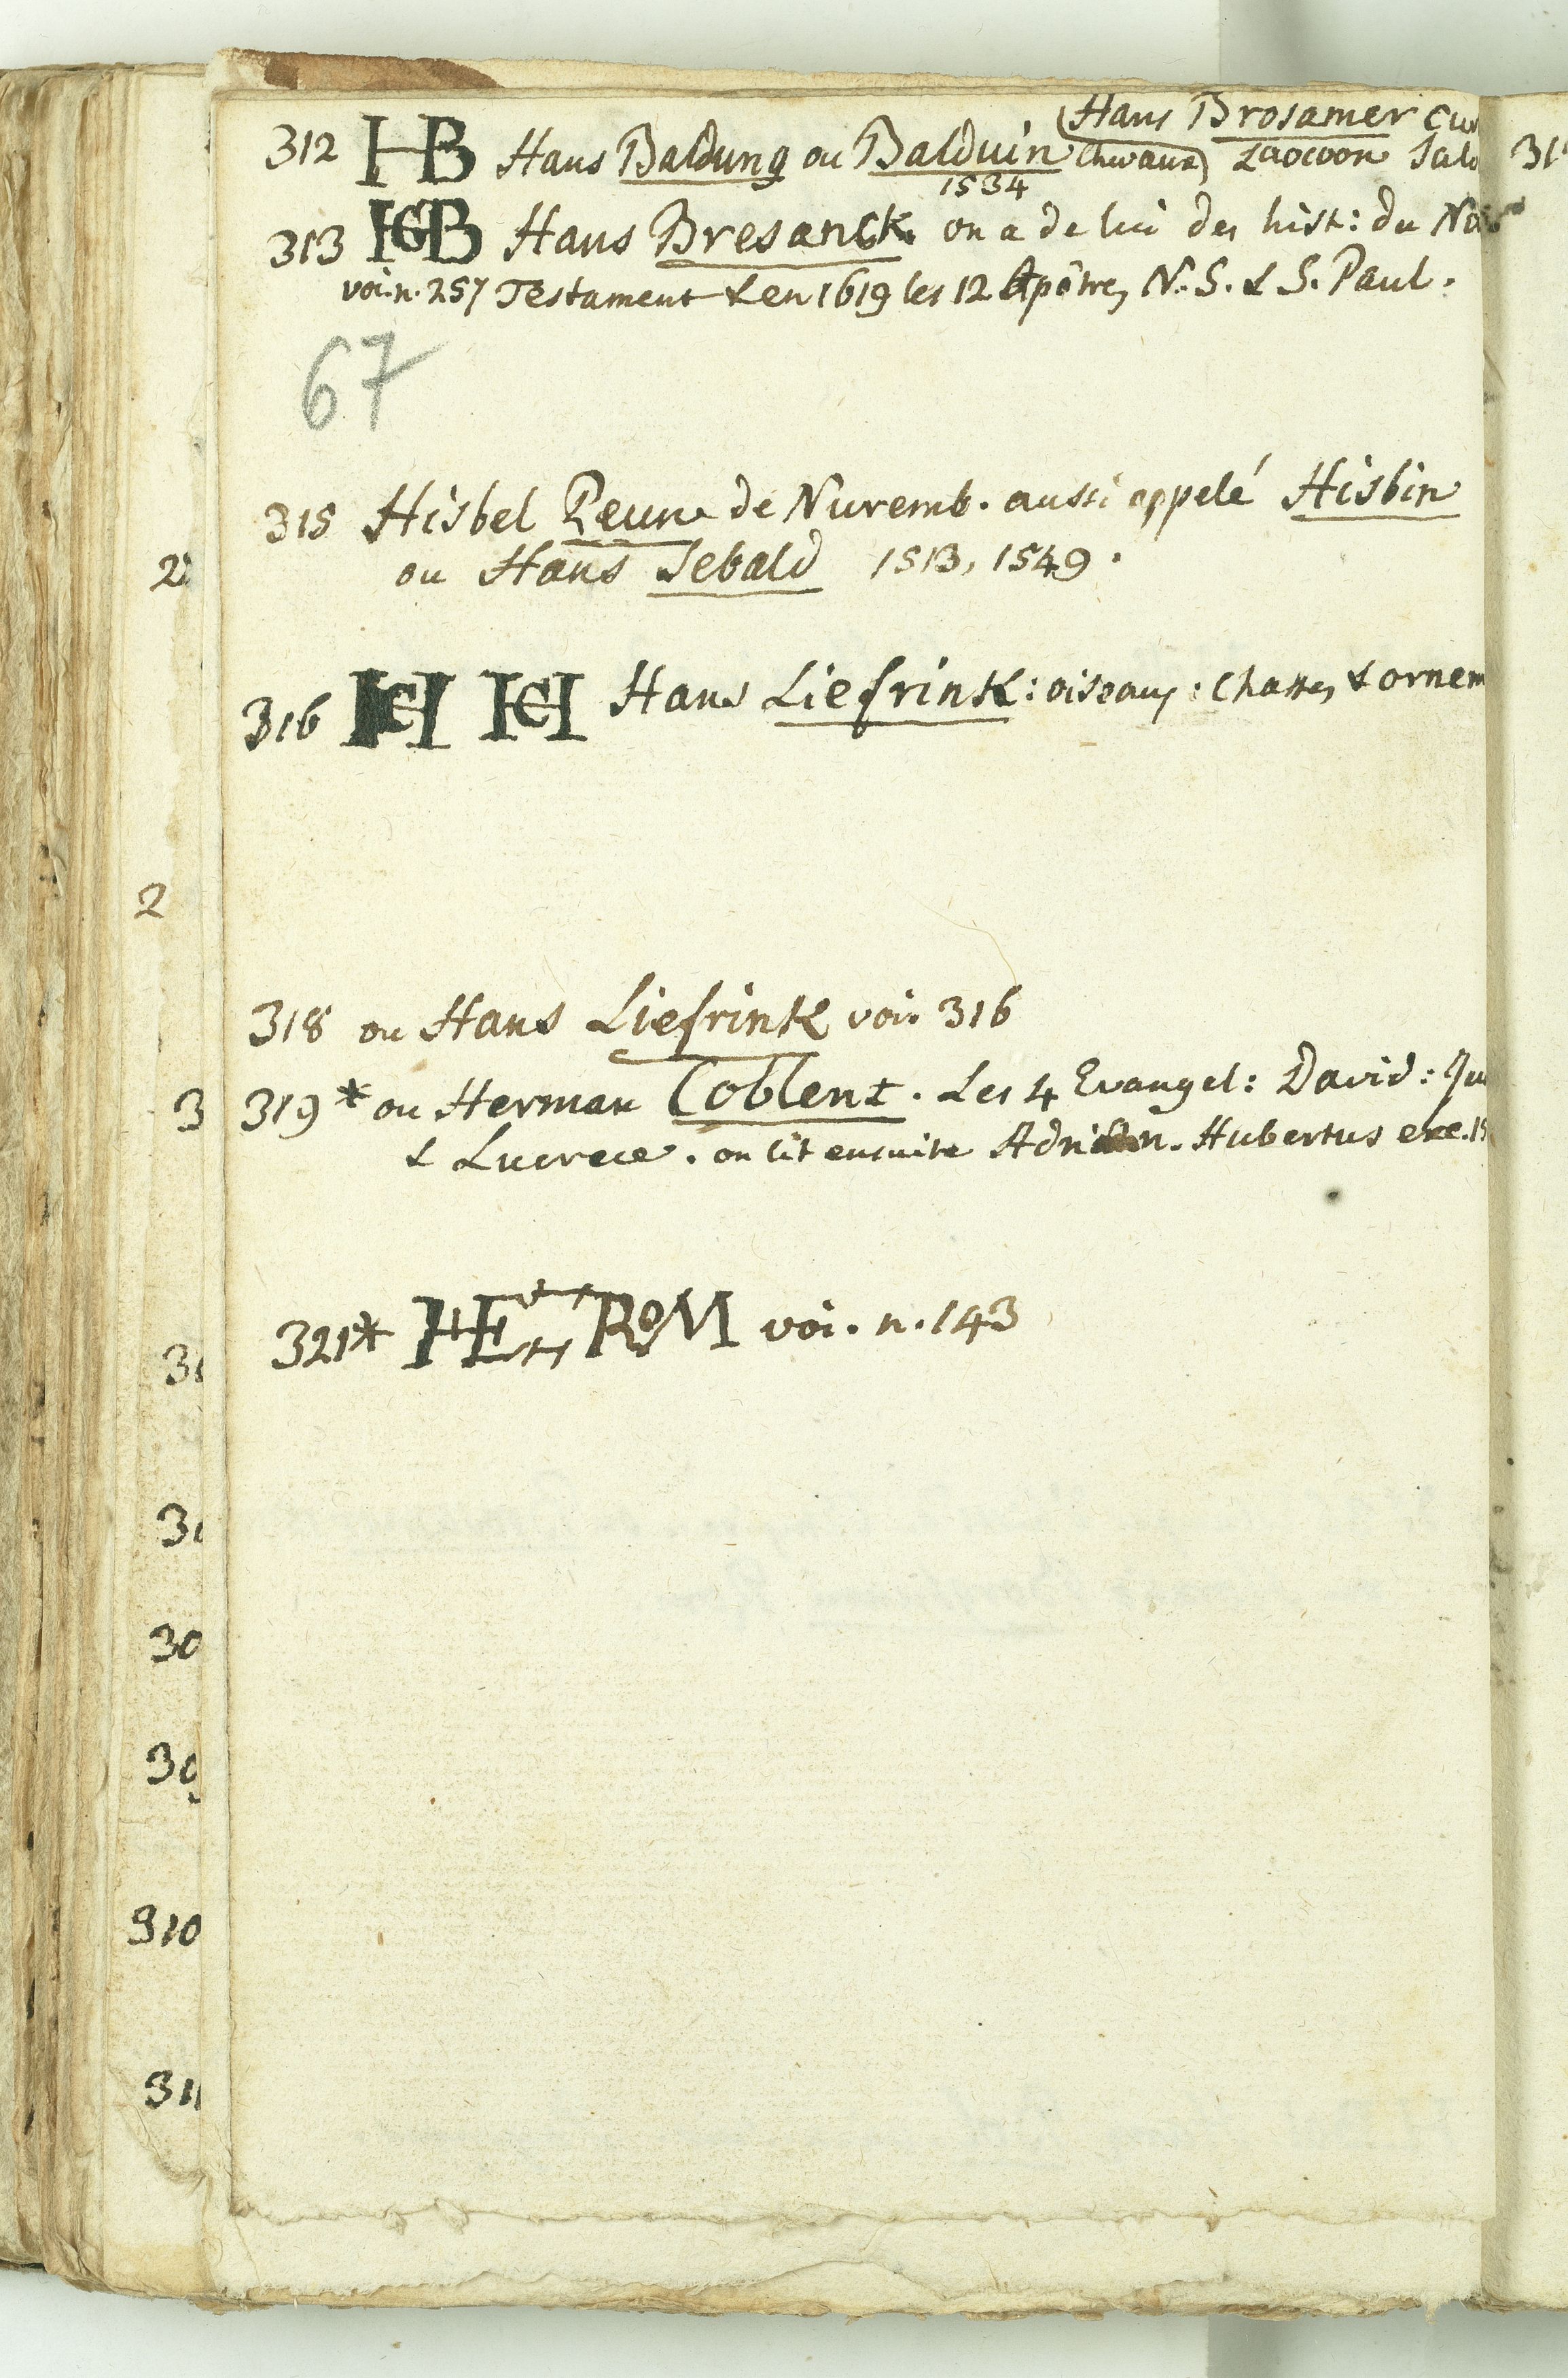 (Hans Brosamer Cur
312 HB Hans Baldung ou Balduin chevaux) Laocoon Salo
1534
313 HGB Hans Bresanck. on a de lui des hist: du Nouv
voi. n. 257 Testament & en 1619 les 12 Apôtres, N. S. & S. Paul.
67
315 Hisbel Peun de Nuremb. aussi appelé Hisbin
ou Hans Sebald 1513, 1549.
316 HCH HCH Hans Liefrink: oiseaux: Chasses & ornem
318 ou Hans Liefrink voi. 316
319* ou Herman Coblent. Les 4 Evangel: David:
& Lucrece. on lit ensuite Adrian. Hubertus exc. 15
321* HE ROM voi. n. 143
2
2
3
3
3
30
30
310
311
31